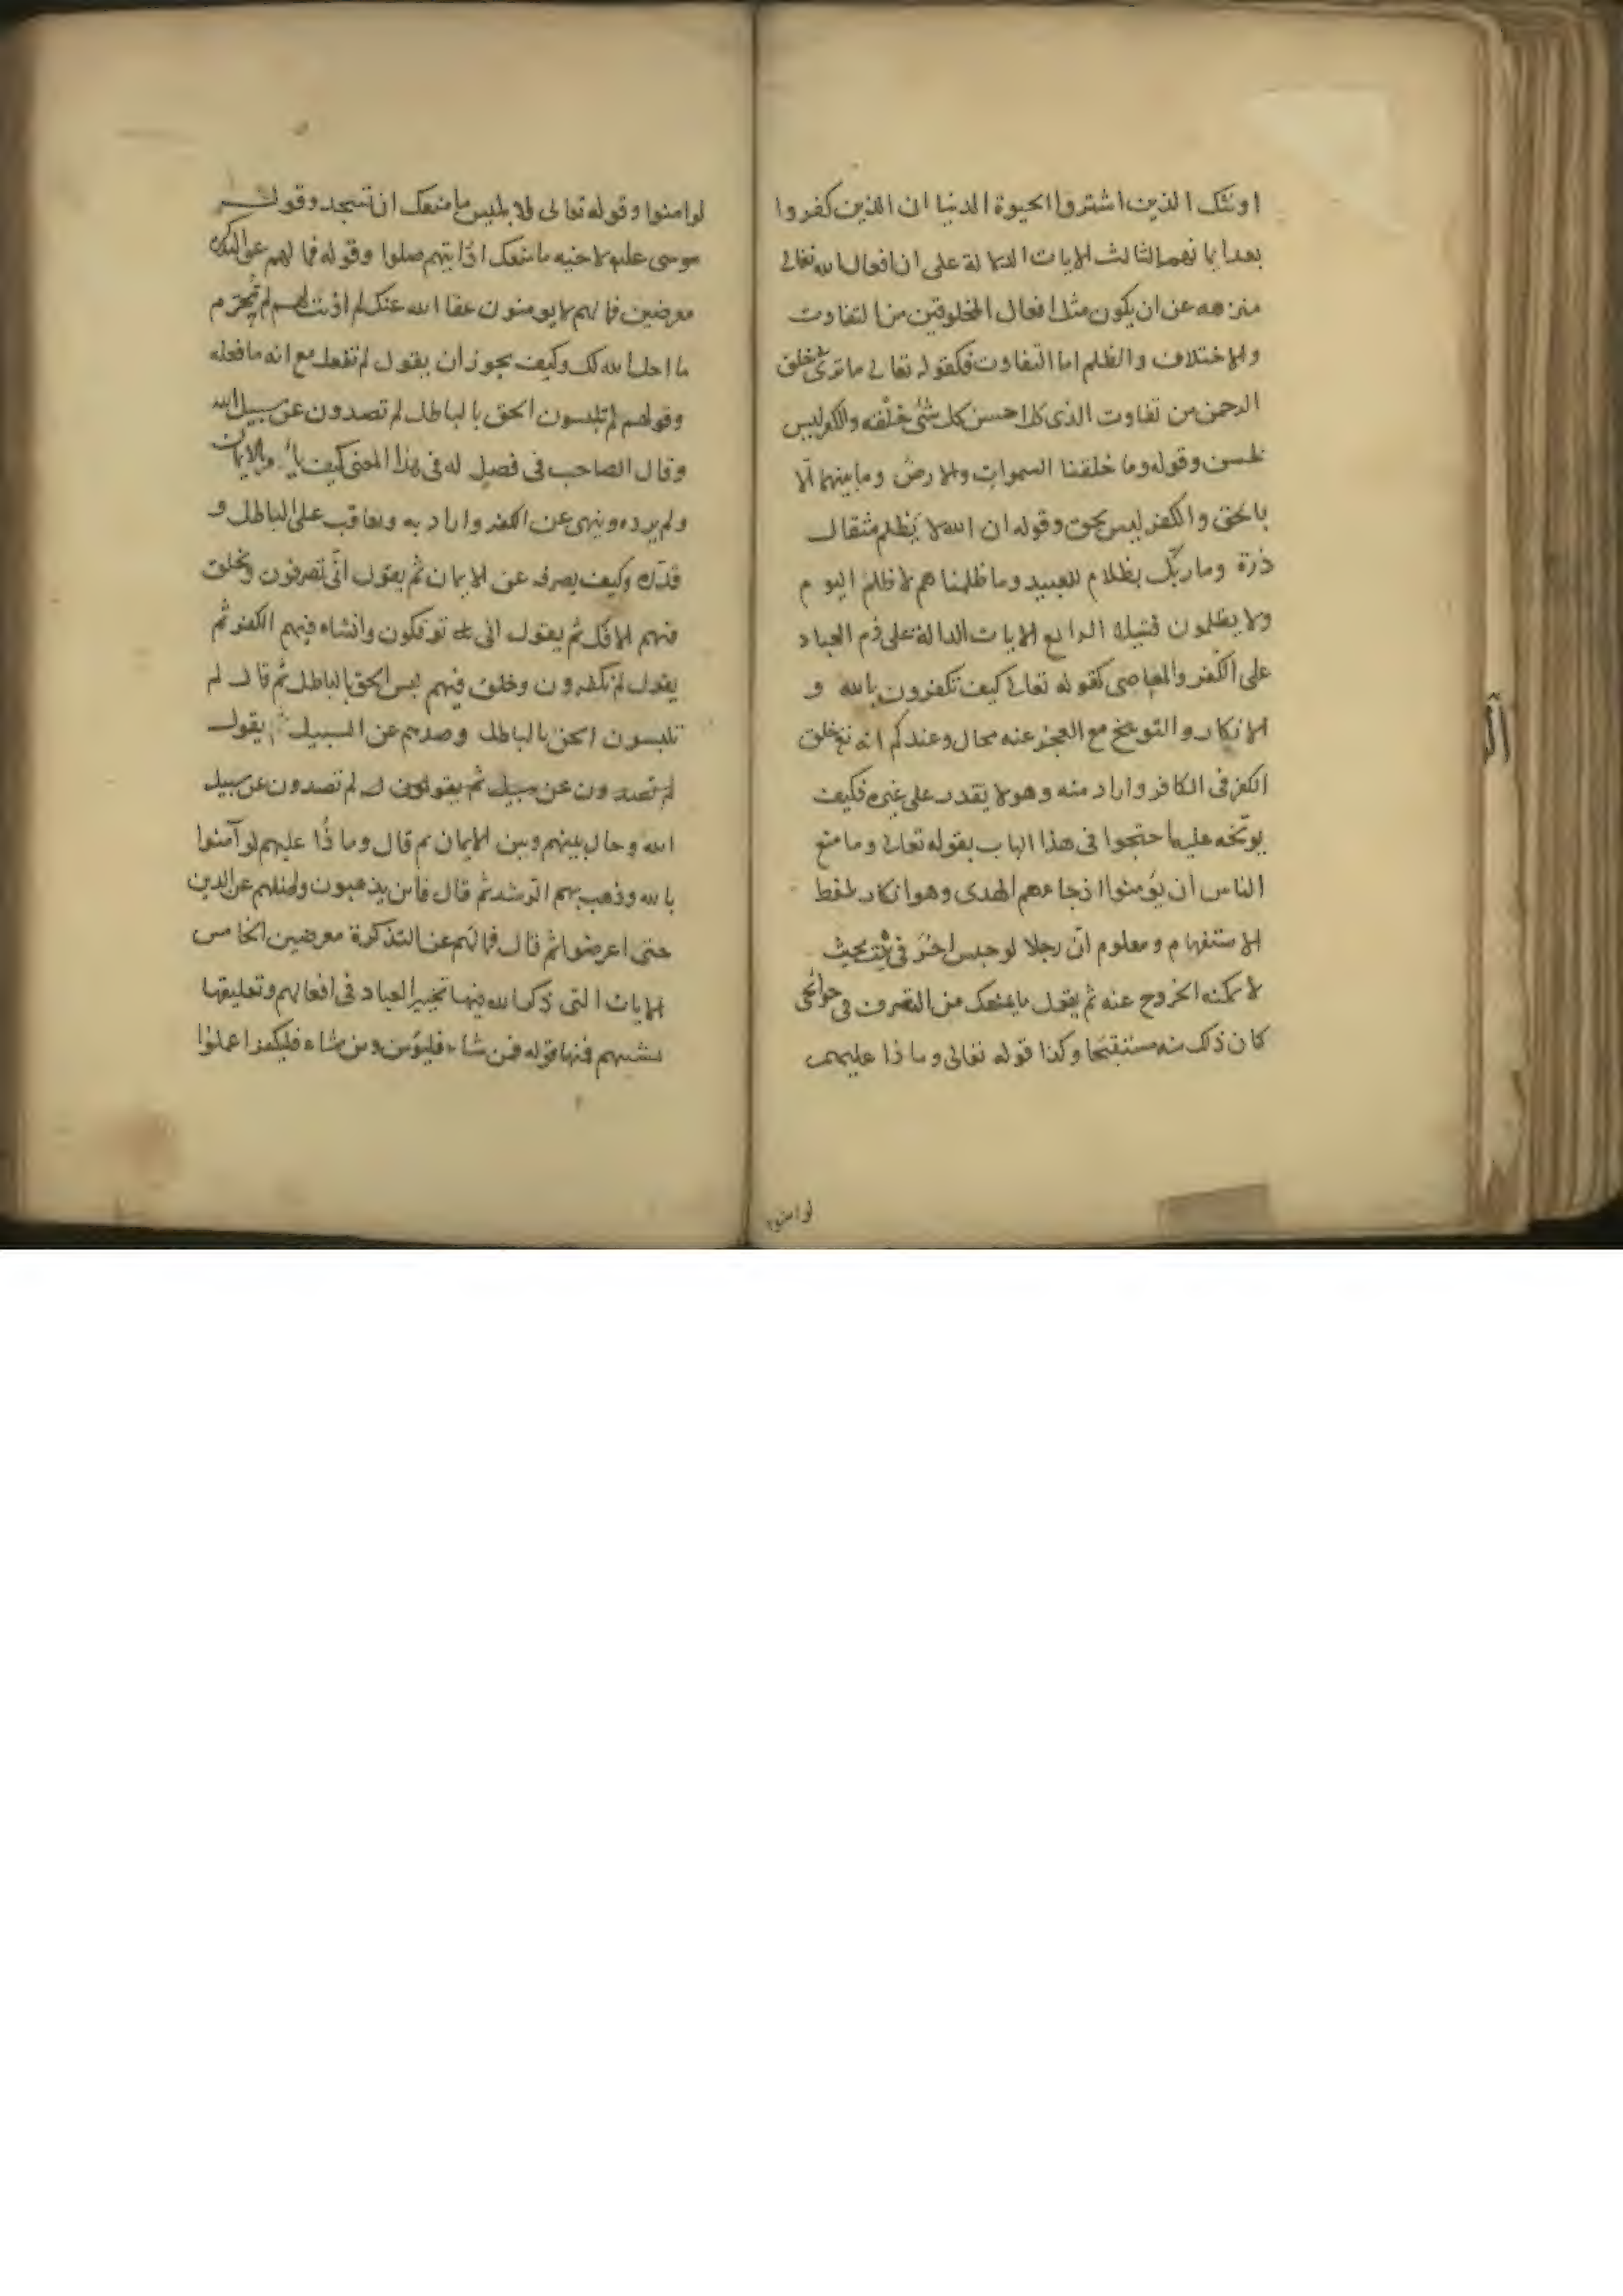 اولئك الذين اشتروا الحيوة الدنيا ان الذين كفروا
بعد ايمانهم الثالث الايات الدالة على ان افعال الله تعالى
منزهه عن ان يكون مثل افعال المخلوقين من التفاوت
والاختلاف والظلم اما التفاوت فكقوله تعالى ما ترى في خلق
الرحمن من تفاوت الذى احسن كل شئ خلقه والكفر ليس
بحسن وقوله وما خلقنا السموات والارض وما بينهما الّا
بالحق والكفر ليس بحق وقوله ان الله لا يظلم مثقال
ذرة وما ربّك بظلام للعبيد وما ظلمناهم لا ظلم اليوم
ولا يظلمون فتيلا الرابع الايات الدالة على ذم العباد
على الكفر والمعاصى كقوله تعالى كيف تكفرون بالله و
الانكار والتوبيخ مع العجز عنه محال وعندكم انه تع خلق
الكفر فى الكافر واراد منه وهو لا يقدر على غيره فكيف
يوبّخه عليه احتجوا فى هذا الباب بقوله تعالى وما منع
الناس ان يؤمنوا اذ جاءهم الهدى وهو انكار بلفظ
الاستفهام ومعلوم انّ رجلا لو حبس اخر فى بيت بحيث
لا يمكنه الخروج عنه ثم يقول ما يمنعك من التصرف فى حوائجى
كان ذلك منه مستقبحا وكذا قوله تعالى وما ذا عليهم
لوامنوا
لوامنوا وقوله تعالى لابليس ما منعك ان تسجد وقول
موسى عليه لاخيه ما منعك اذ رايتهم ضلوا وقوله فما لهم عن التذكرة
معرضين فما لهم لا يومنون عفا الله عنك لم اذنت لهم لم تحرّم
ما احل الله لك وكيف يجوز ان يقول لم تفعل مع انه ما فعله
وقولهم لم تلبسون الحق بالباطل لم تصدون عن سبيل الله
وقال الصاحب فى فصل له فى هذا المعنى كيف يأمر بالايمان
ولم يرده وينهى عن الكفر واراد به ويعاقب على الباطل و
قدّره وكيف يصرفه عن الايمان ثم يقول انّى تصرفون ويخلق
فيهم الافك ثم يقول انى توفكون وانشاء فيهم الكفر ثم
يقول لم تكفرون وخلق فيهم لبس الحق بالباطل ثم قال لم
تلبسون الحق بالباطل وصدهم عن السبيل ثم يقول
لم تصدون عن سبيل ثم يقول لم تصدون عن سبيل
الله وحال بينهم وبين الايمان ثم قال وما ذا عليهم لو آمنوا
بالله وذهب بهم الرشد ثم قال فاين يذهبون واضلهم عن الدين
حتى اعرضوا ثم قال فما لهم عن التذكرة معرضين الخامس
الايات التى ذكر الله فيها تخيير العباد فى افعالهم وتعليقها
بمشيهم فمنها قوله فمن شاء فليؤمن ومن شاء فليكفر اعملوا